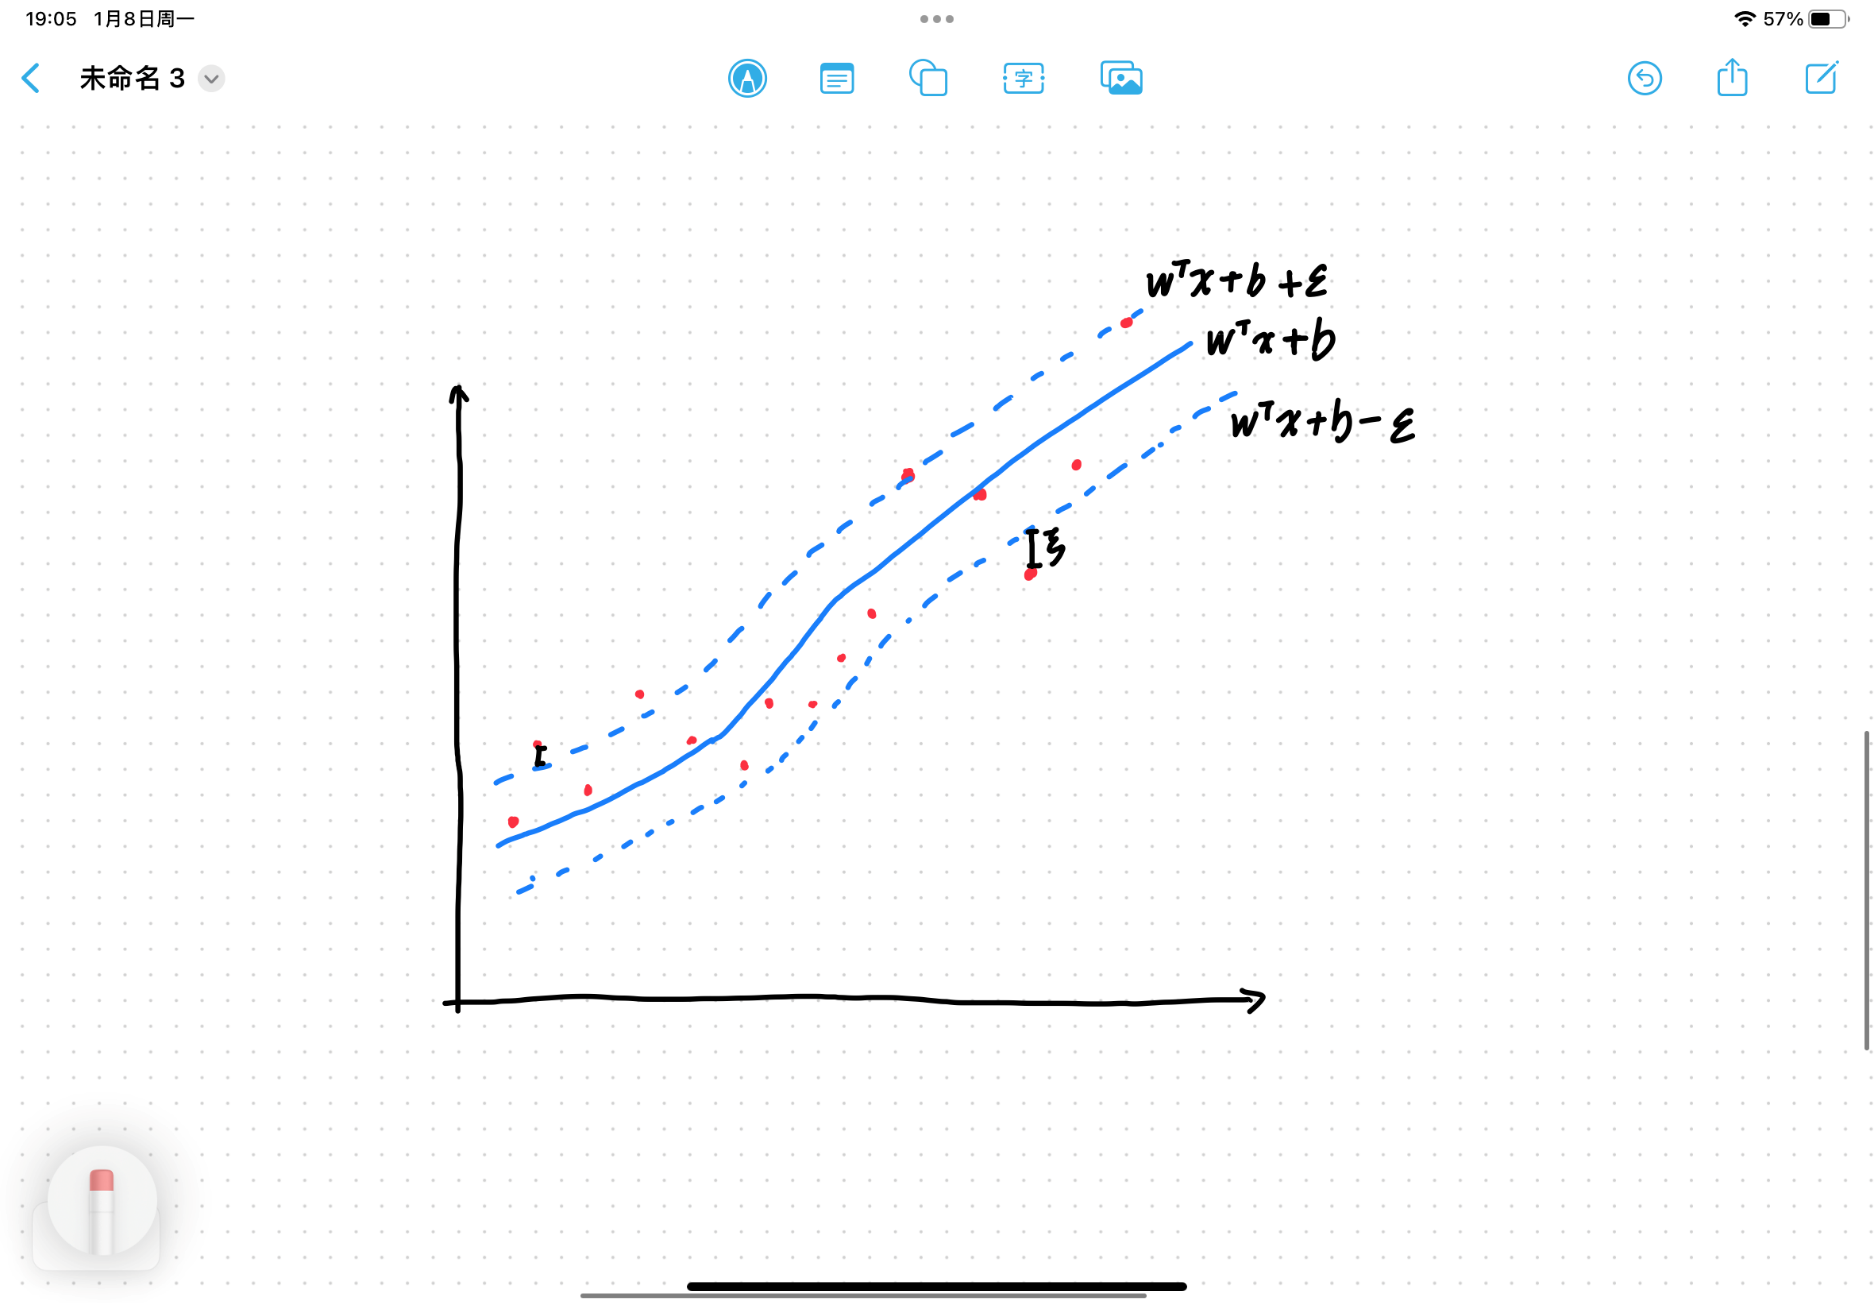 19:05 1月8日周一
57%
未命名 3
字
wᵀx+b+ε
wᵀx+b
wᵀx+b-ε
ξ